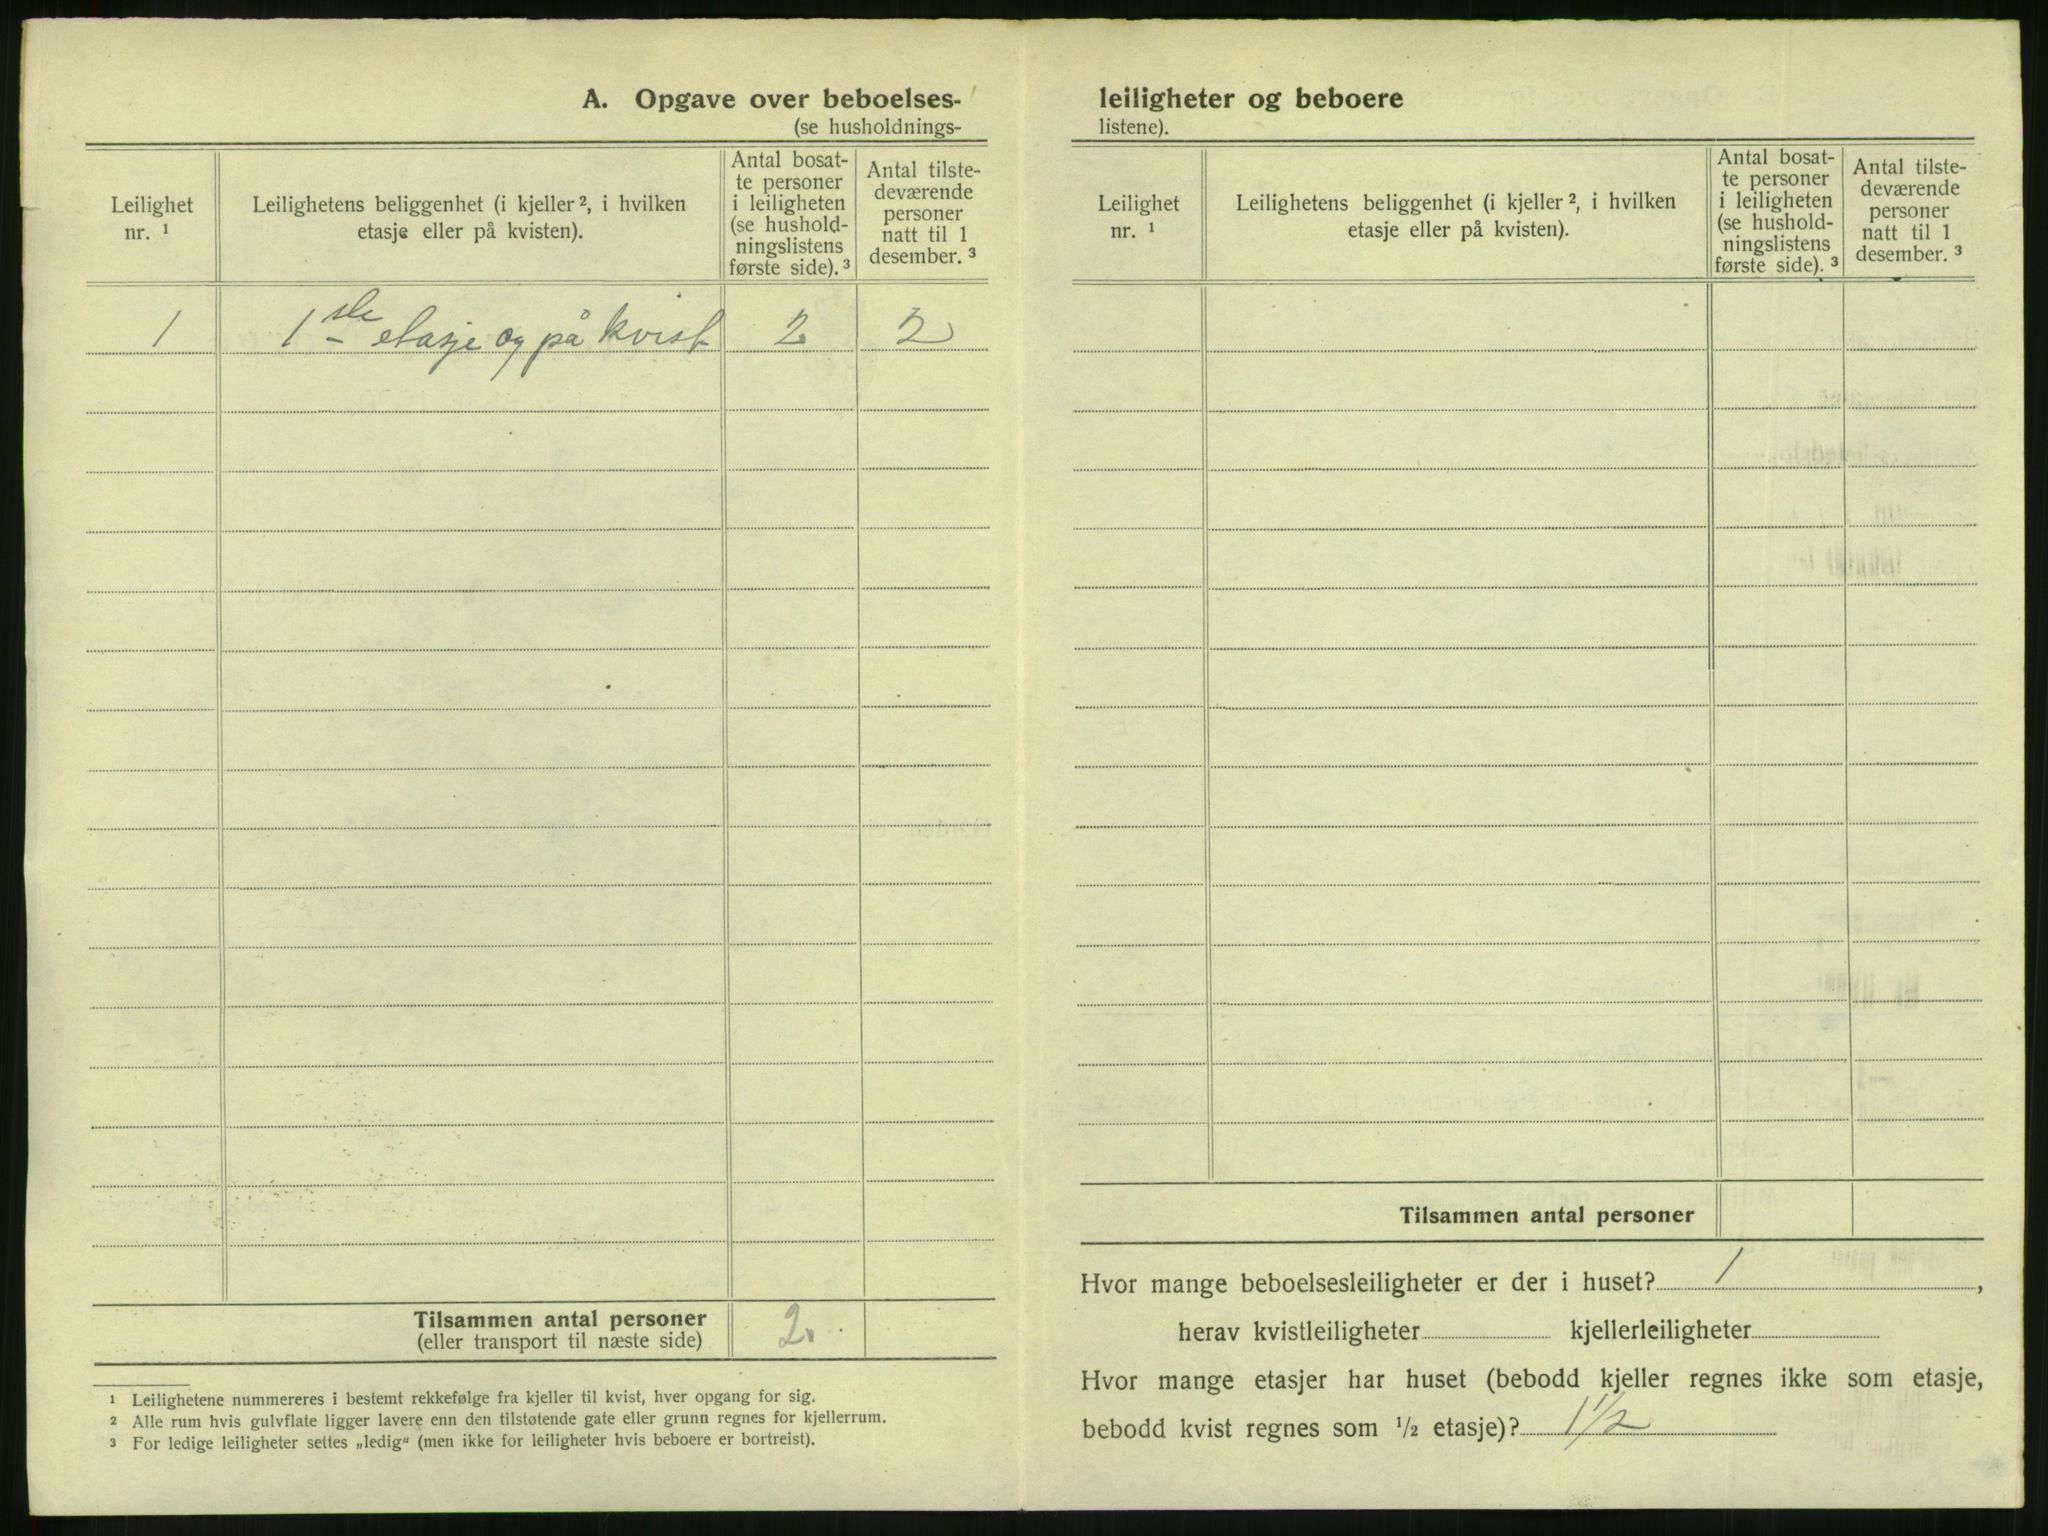 A. Opgave over beboelses-
(se husholdnings-
Leilighet
nr. ¹
Leilighetens beliggenhet (i kjeller ², i hvilken
etasje eller på kvisten).
Antal bosat-
te personer
i leiligheten
(se hushold-
ningslistens
første side). ³
Antal tilste-
deværende
personer
natt til 1
desember. ³
1 1ste etasje og på kvist 2 2
Tilsammen antal personer 2.
(eller transport til næste side)
¹ Leilighetene nummereres i bestemt rekkefølge fra kjeller til kvist, hver opgang for sig.
² Alle rum hvis gulvflate ligger lavere enn den tilstøtende gate eller grunn regnes for kjellerrum.
³ For ledige leiligheter settes „ledig“ (men ikke for leiligheter hvis beboere er bortreist).
leiligheter og beboere
listene).
Leilighet
nr. ¹
Leilighetens beliggenhet (i kjeller ², i hvilken
etasje eller på kvisten).
Antal bosat-
te personer
i leiligheten
(se hushold-
ningslistens
første side). ³
Antal tilste-
deværende
personer
natt til 1
desember. ³
Tilsammen antal personer
Hvor mange beboelsesleiligheter er der i huset? 1,
herav kvistleiligheter kjellerleiligheter
Hvor mange etasjer har huset (bebodd kjeller regnes ikke som etasje,
bebodd kvist regnes som ½ etasje)? 1 1/2